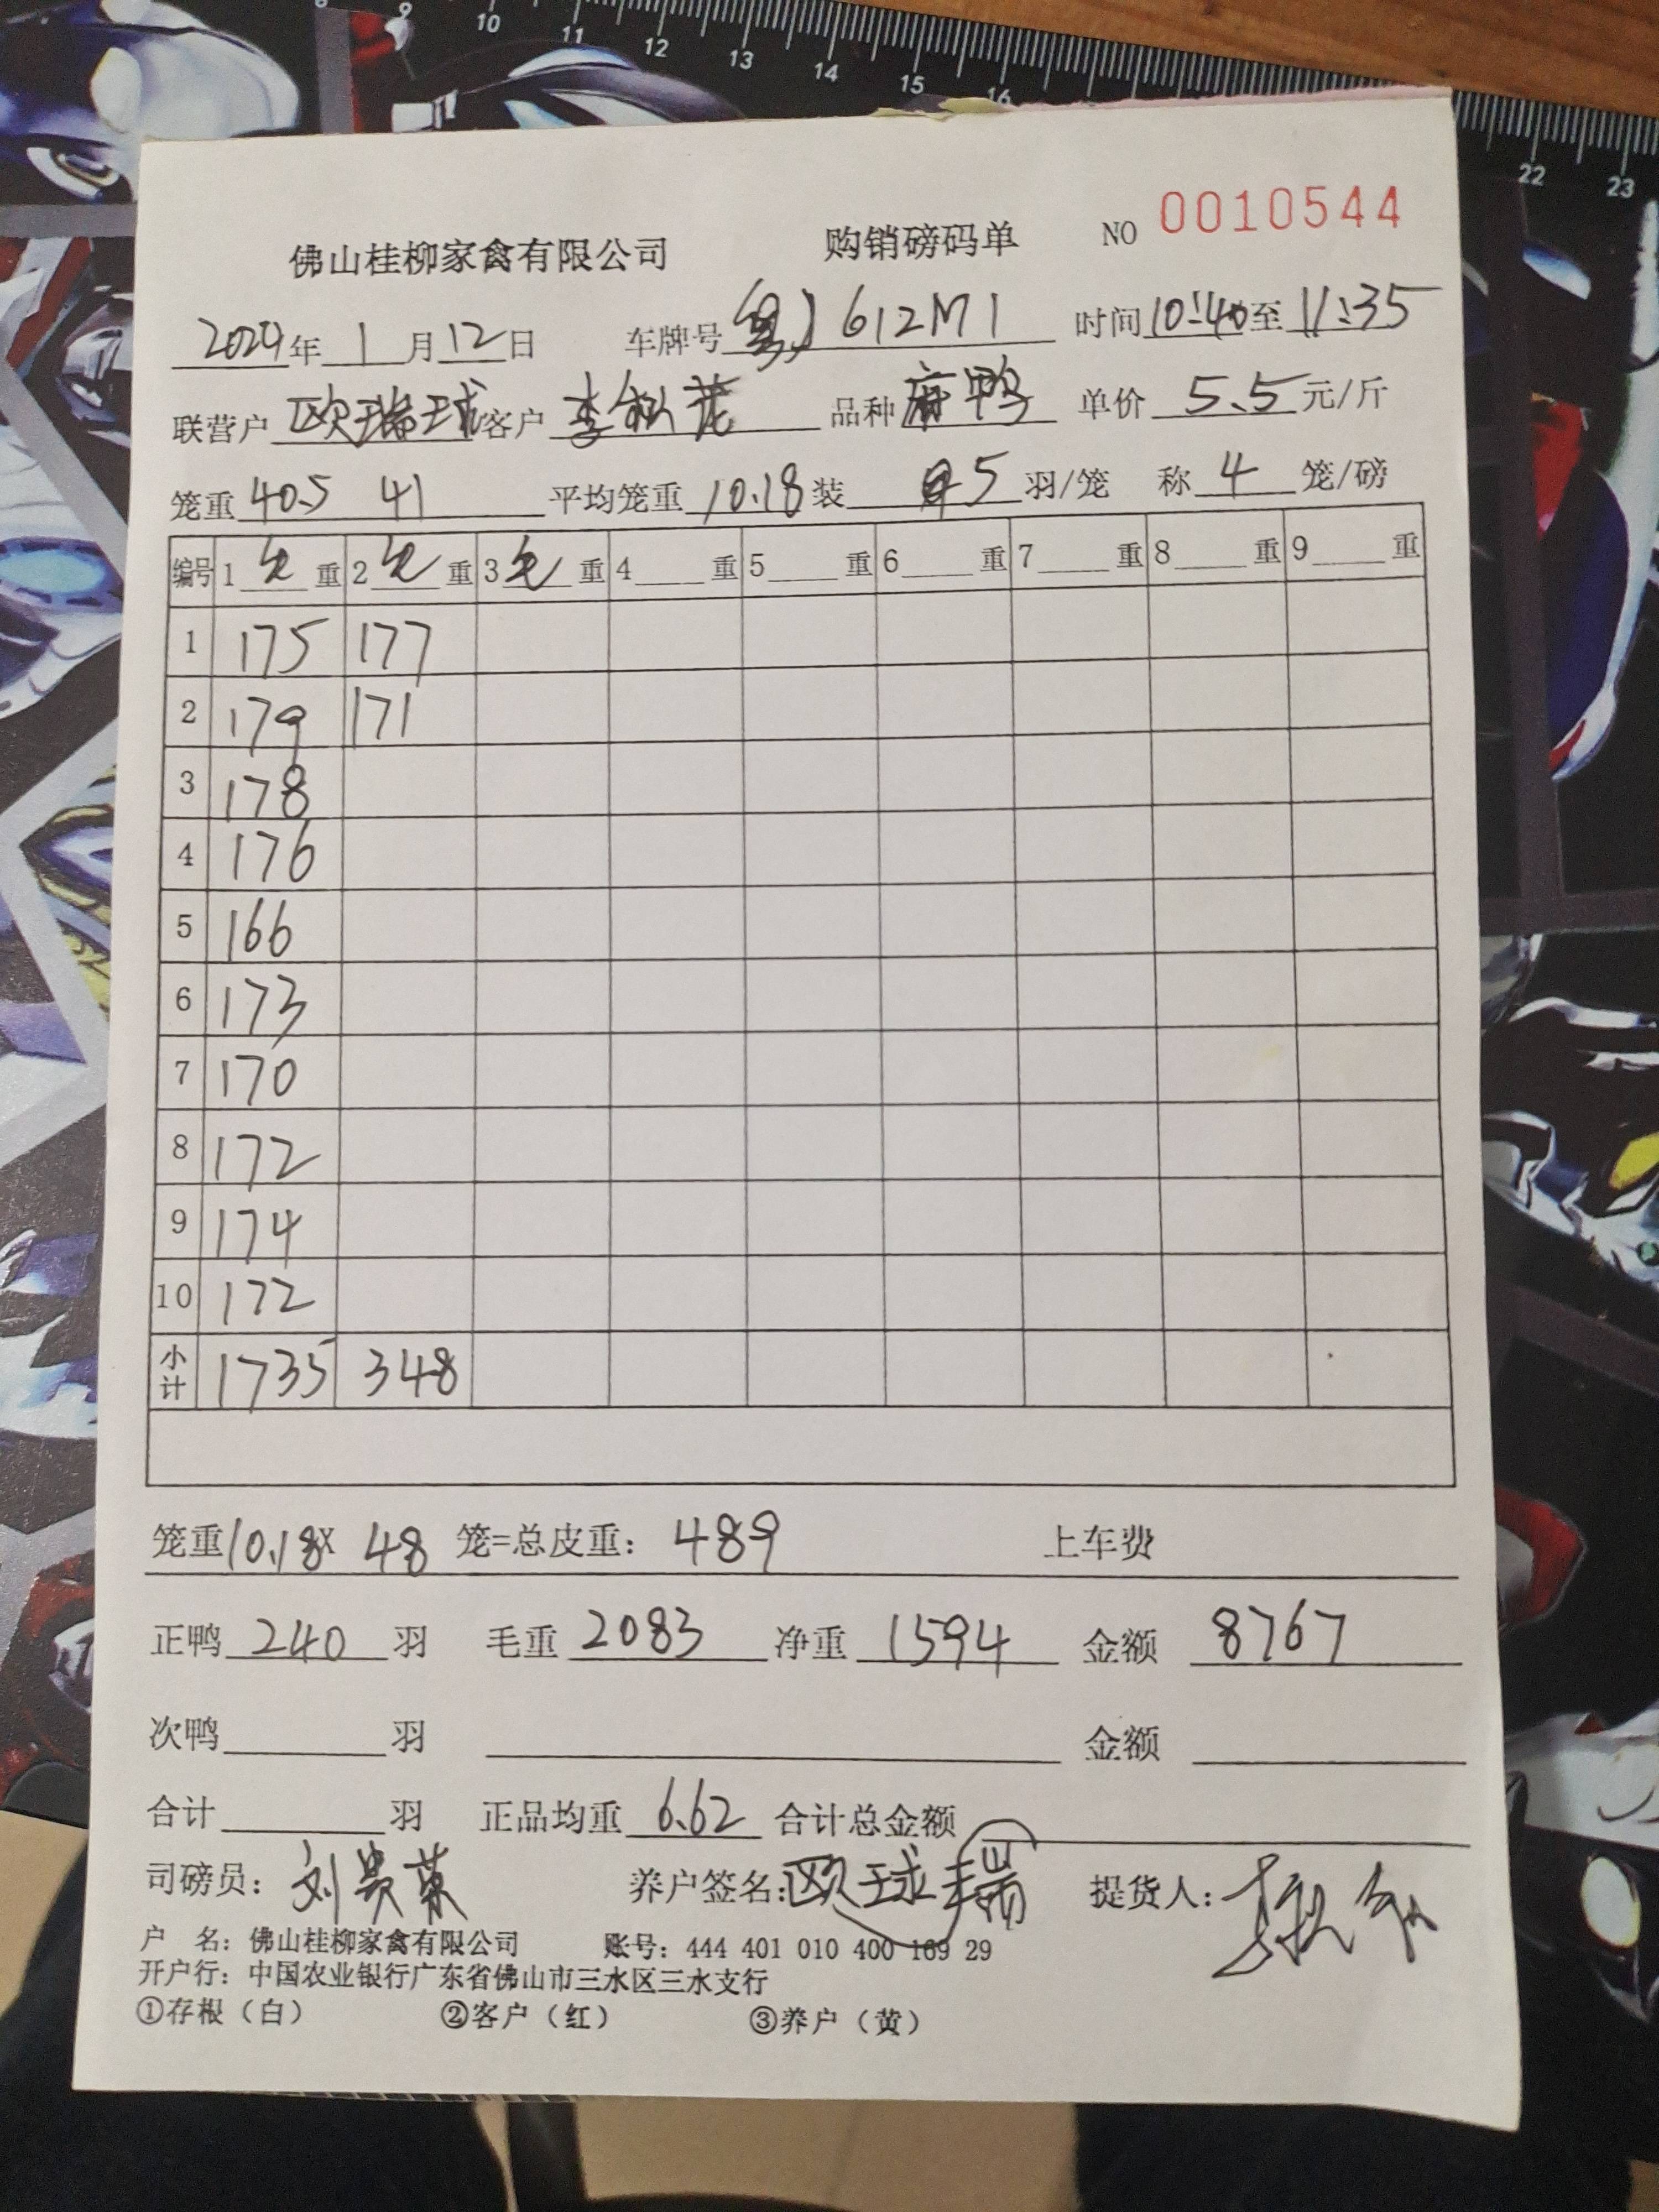 8 9 10 11 12 13 14 15 16 22 23
佛山桂柳家禽有限公司 购销磅码单 NO 0010544
2024年 1 月 12 日 车牌号 粤J 612M1 时间 10:40 至 11:35
联营户 欧瑞球 客户 李松茂 品种 麻鸭 单价 5.5 元/斤
笼重 40.5 41 平均笼重 10.18 装 5 羽/笼 称 4 笼/磅
编号 1 毛 重 2 毛 重 3 毛 重 4 重 5 重 6 重 7 重 8 重 9 重
1 175 177
2 179 171
3 178
4 176
5 166
6 173
7 170
8 172
9 174
10 172
小计 1735 348
笼重 10.18 X 48 笼=总皮重: 489 上车费
正鸭 240 羽 毛重 2083 净重 1594 金额 8767
次鸭 羽 金额
合计 羽 正品均重 6.62 合计总金额
司磅员: 刘贵荣 养户签名: 欧球瑞 提货人:
户 名: 佛山桂柳家禽有限公司 账号: 444 401 010 400 169 29
开户行: 中国农业银行广东省佛山市三水区三水支行
①存根（白） ②客户（红） ③养户（黄）